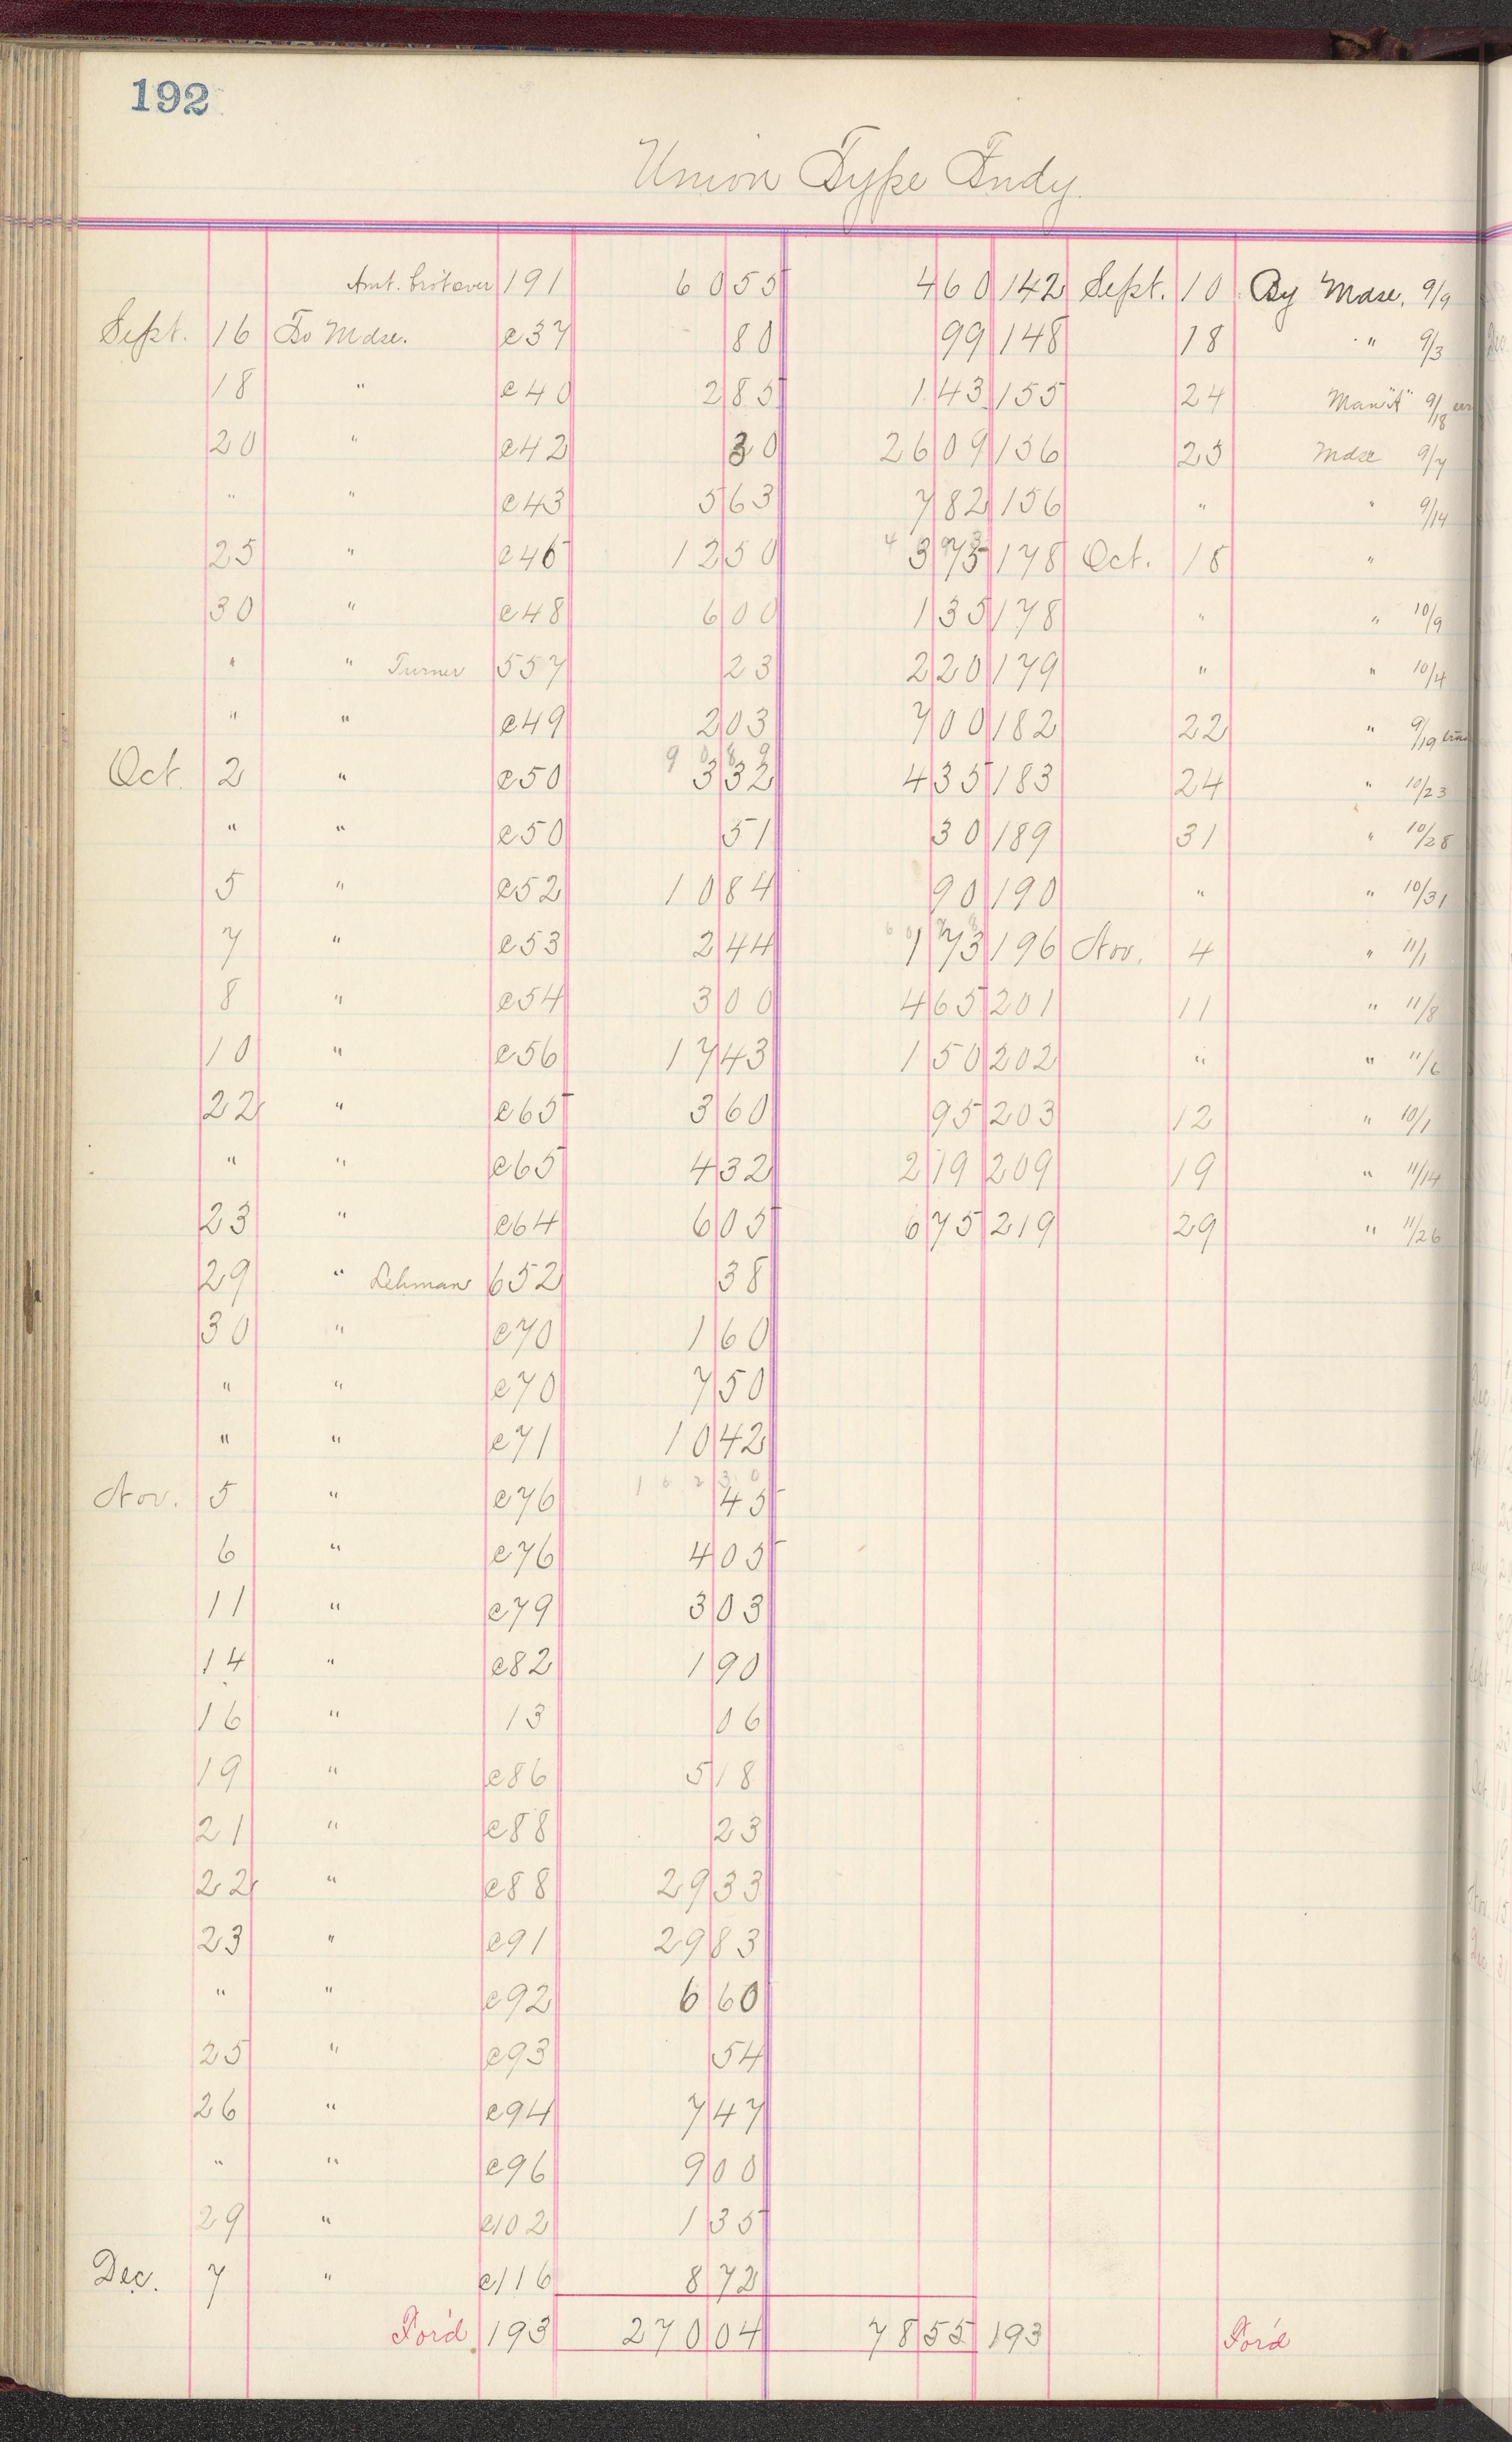 192
Union Type Fndy.
Amt. bro't over 191 60 55 4 60 142 Sept. 10 By Mdse. 9/9
Sept. 16 To Mdse. c37 80 99 148 18 " 9/3
18 " c40 2 85 1 43 155 24 Man "A" 9/18
20 " c42 30 26 09 156 25 Mdse 9/7
" " c43 5 63 7 82 156 " " 9/14
25 " c46 12 50 3 75 178 Oct. 18 "
30 " c48 6 00 1 35 178 " " 10/9
" " Turner 557 23 2 20 179 " " 10/4
" " c49 2 03 7 00 182 22 " 9/19
Oct. 2 " c50 3 32 4 35 183 24 " 10/23
" " c50 51 30 189 31 " 10/28
5 " c52 10 84 90 190 " " 10/31
7 " c53 2 44 1 73 196 Nov. 4 " 11/1
8 " c54 3 00 4 65 201 11 " 11/8
10 " c56 17 43 1 50 202 " " 11/6
22 " c65 3 60 95 203 12 " 10/1
" " c65 4 32 2 19 209 19 " 11/14
23 " c64 6 05 6 75 219 29 " 11/26
29 " Lehman 652 38
30 " c70 1 60
" " c70 7 50
" " c71 10 42
Nov. 5 " c76 45
6 " c76 4 05
11 " c79 3 03
14 " c82 1 90
16 " 13 06
19 " c86 5 18
21 " c88 23
22 " c88 29 33
23 " c91 29 83
" " c92 6 60
25 " c93 54
26 " c94 7 47
" " c96 9 00
29 " c102 1 35
Dec. 7 " c116 8 72
For'd 193 270 04 78 55 193 For'd